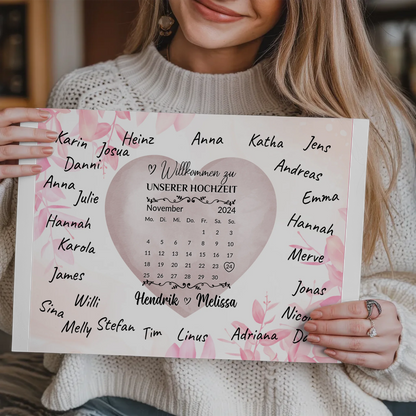 Karin Heinz Anna Katha Jens
Danni Josua
Andreas
Anna
Julie
Emma
Hannah
Hannah
Karola
Merve
James
Jonas
Sina
Willi
Melly Stefan Tim Linus Adriana
Willkommen zu
UNSERER HOCHZEIT
November 2024
Mo. Di. Mi. Do. Fr. Sa. So.
1 2 3
4 5 6 7 8 9 10
11 12 13 14 15 16 17
18 19 20 21 22 23 24
25 26 27 28 29 30
Hendrik Melissa